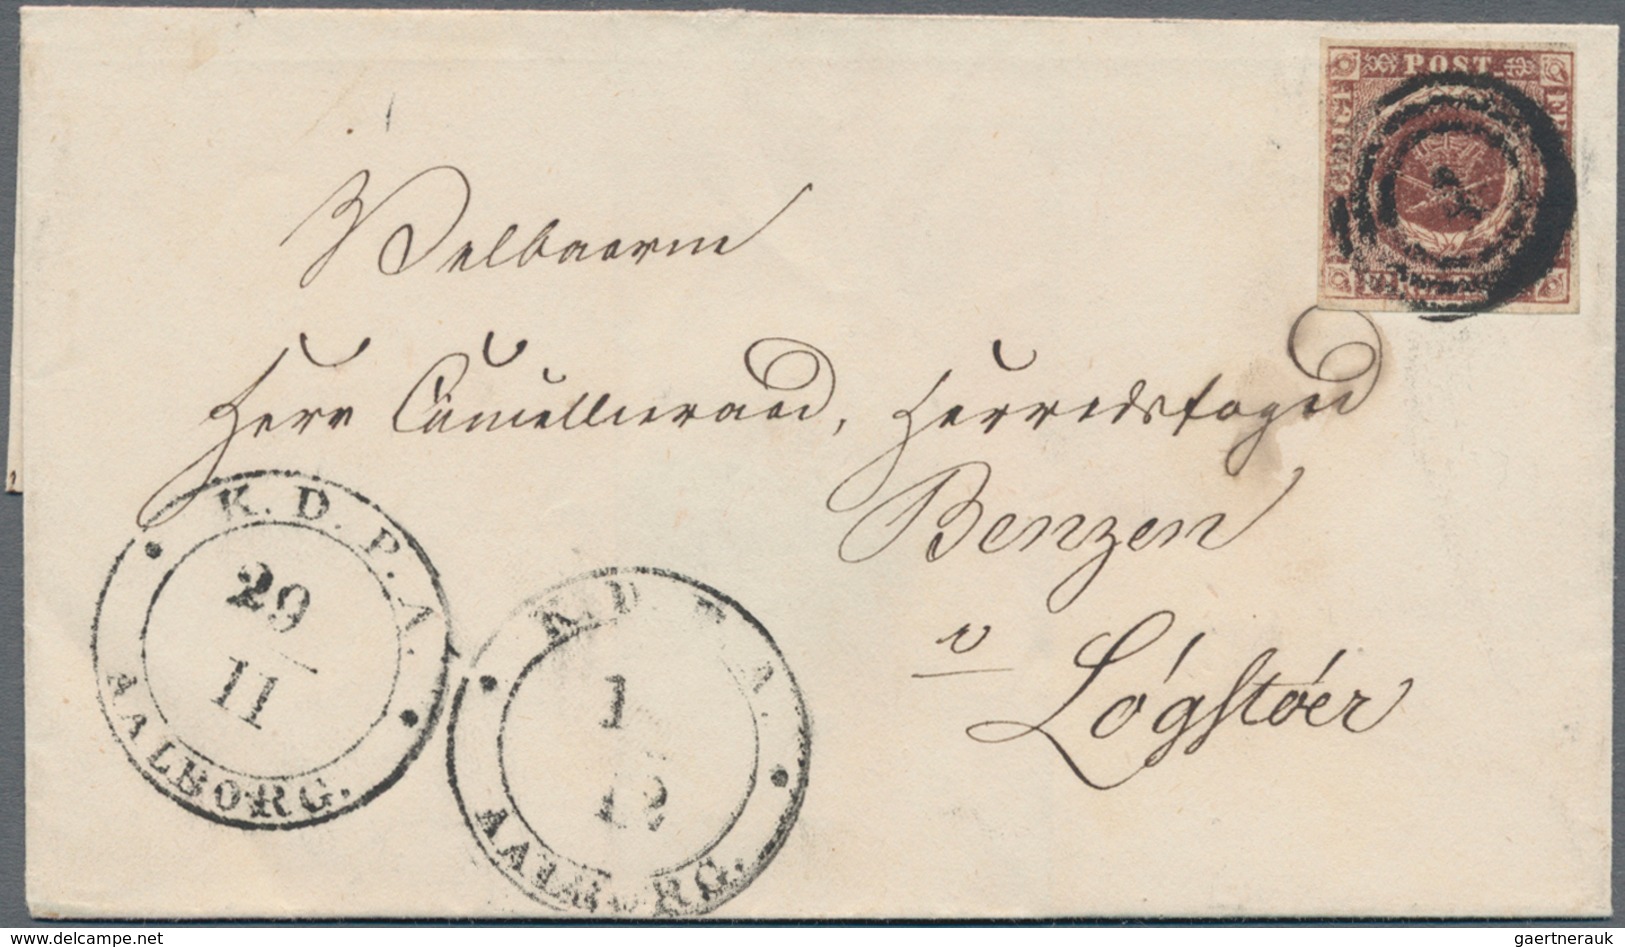 POST
Velbaarne
Herr Cancellieraad, Herredsfoged
Benzen
v
Lógstóer
K. D. P. A.
29
11
AALBORG.
K. D. P. A.
1
12
AALBORG.
delcampe.net
gaertnerauk